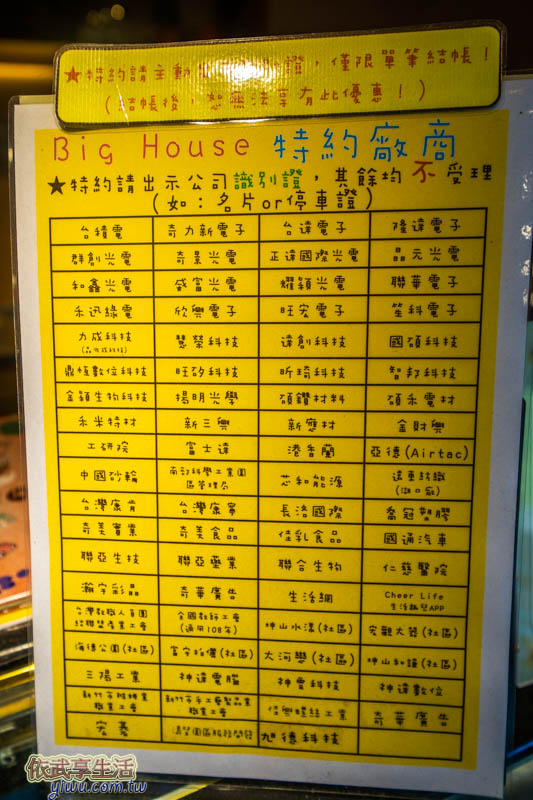 ★特約請主動出示證，僅限單筆結帳！
(結帳後，恕無法享有此優惠！)
Big House 特約廠商
★特約請出示公司識別證，其餘均不受理
(如：名片or停車證)
台積電 奇力新電子 台達電子 隆達電子
群創光電 奇景光電 正達國際光電 晶元光電
和鑫光電 盛富光電 耀穎光電 聯華電子
禾迅綠電 欣興電子 旺宏電子 笙科電子
力成科技 慧榮科技 達創科技 國碩科技
鼎恆數位科技 旺矽科技 昕琦科技 智邦科技
金穎生物科技 揚明光學 碩鑽材料 碩禾電材
禾米特材 新三興 新應材 金財興
工研院 富士達 港香蘭 亞德(Airtac)
中國砂輪 南部科學工業園區管理局 芯和能源 遠東紡織
台灣康肯 台灣康寧 長洛國際 喬冠塑膠
奇美實業 奇美食品 佳乳食品 國通汽車
聯亞生技 聯亞藥業 聯合生物 仁慈醫院
瀚宇彩晶 奇華廣告 生活網 Cheer Life
生活APP
全國教師工會
(適用108年) 神山水漾(社區) 宏觀大器(社區)
海德公園(社區) (社區) 大河戀(社區) 神山和謙(社區)
三陽工業 神達電腦 神雲科技 神達數位
新竹市 職業工會 新竹市手工藝製品業職業工會 螺絲工業 奇華廣告
宏碁 旭德科技
依武享生活
yiwu.com.tw